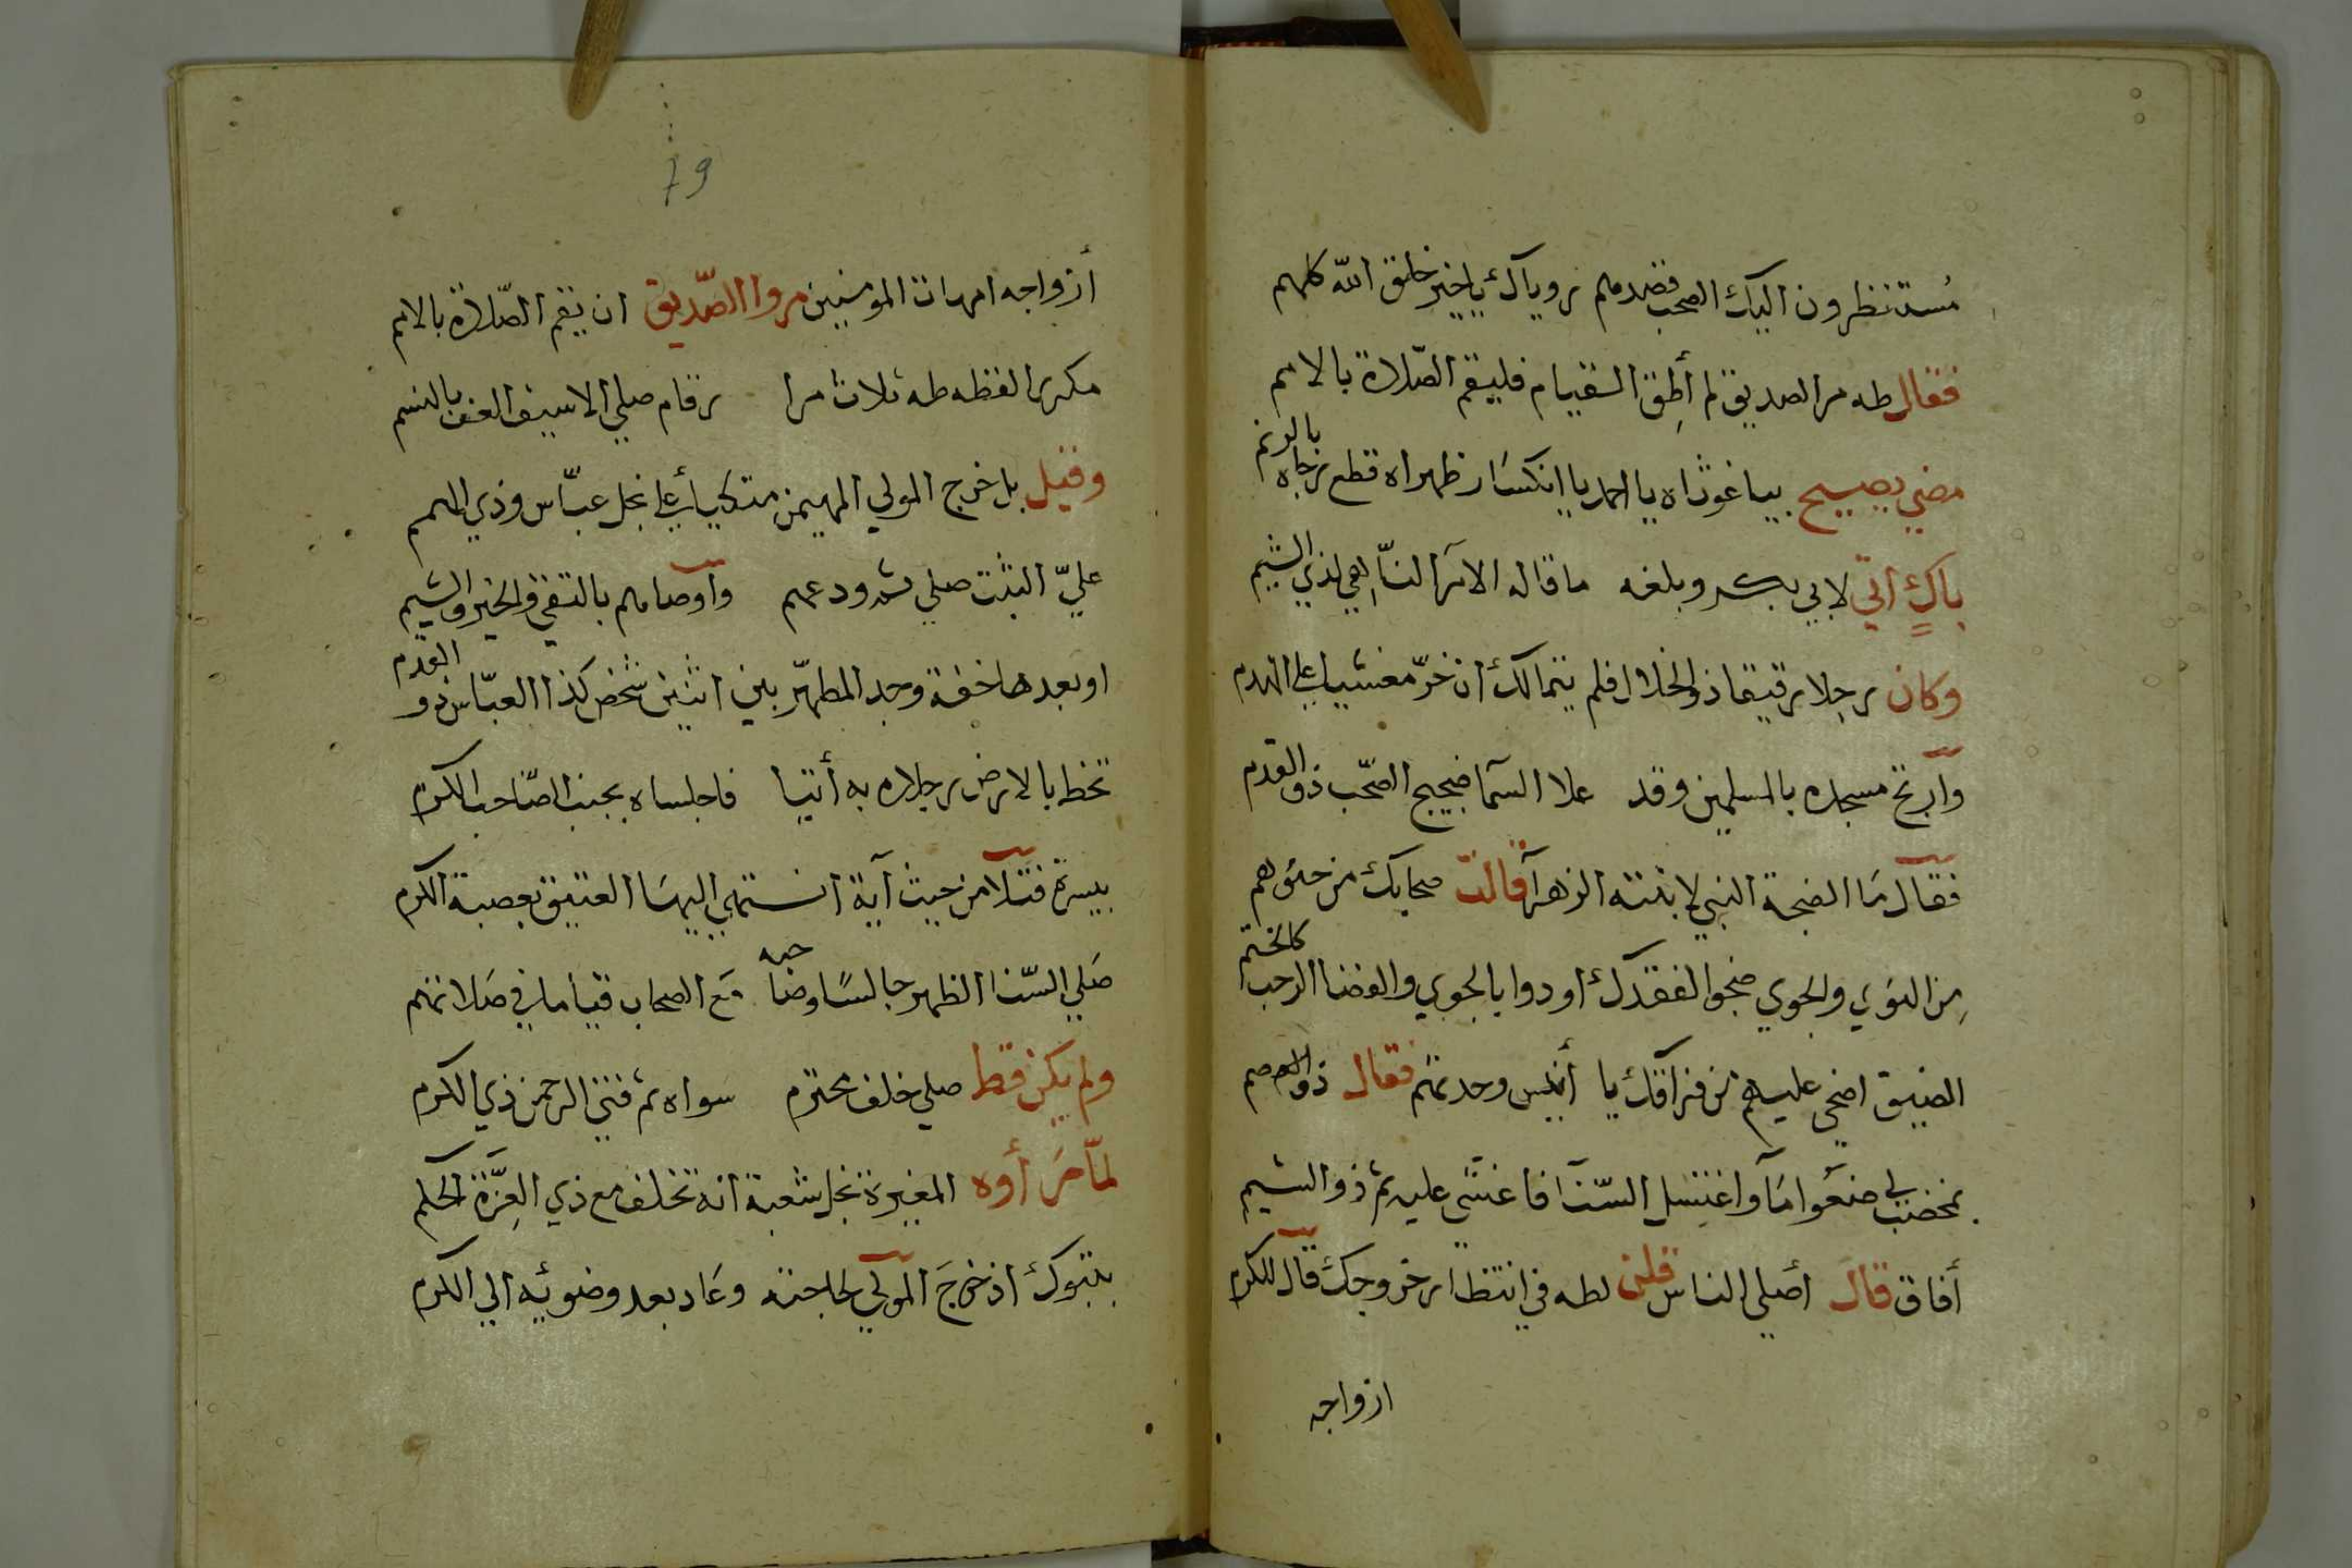 مستنظرون اليك الصحب قصدهم روياك يا خير خلق الله كلهم
فقال طه مر الصديق لم أطق القيام فليقم الصلاة بالامم
مضي يصيح بيا غوثاه يا احمد يا انكسار ظهراه قطع رجاه بالوتم
باك اتي لابي بكر وبلغه ما قاله الآمر الناهي لذي الشيم
وكان رجلا رقيقا ذو الخلال فلم يتمالك ان خر مغشيا علي الهدم
وآرتج مسجده بالمسلمين وقد علا السما ضجيج الصحب ذو القدم
فقال ما الضجة النبي لابنته الزهرآ قالت صحابك من حئوهم
من النوي والجوي ضجوا لفقدك أودوا بالجوي والفضا الرحب كالختم
الضيق اضحي عليهم من فرآقك يا أنيس وحدتهم فقال ذو العصم
بمخضب لي ضعوا مآ واغتسل السنا فاغشي عليه ثم ذو الشيم
أفاق قال أصلي الناس قلن لطه في انتظار خروجك قال للكرم
ازواجه
79
أزواجه امهات المومنين مروا الصديق ان يقم الصلاة بالامم
مكررا لفظه طه ثلاث مرا ر قام صلي الاسيف العف بالنسم
وقيل بل خرج المولي المهيمن متكيأ علي نجل عباس وذي الهمم
علي الثبت صلي ثم ودعهم وآوصاهم بالتقي والخير والشيم
او بعدها خفة وجد المطهر بين اثنين شخص كذا العباس ذو القدم
تخط بالارض رجلاه به أتيا فاجلساه بجنب الصاحب الكرم
بيسرة فتلا من حيث آية انتهي اليها العتيق بعصبة الكرم
صلي السنا الظهر جالسا وصاحبه مع الصحاب قياما في صلاتهم
ولم يكن قط صلي خلف محترم سواه ثم فتي الرحمن ذي الكرم
لما رأوه المغيرة نجل شعبة انه تخلف مع ذي العزة الحكم
بتبوك اذ خرج المولي لحاجته وعاد بعد وضوئه الي الكرم